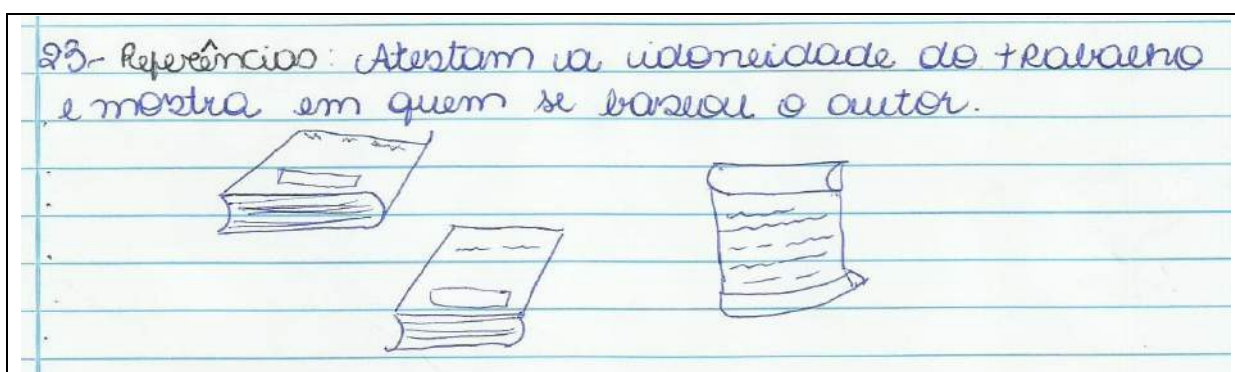 23- Referências: Atestam a idoneidade do trabalho
e mostra em quem se baseou o autor.